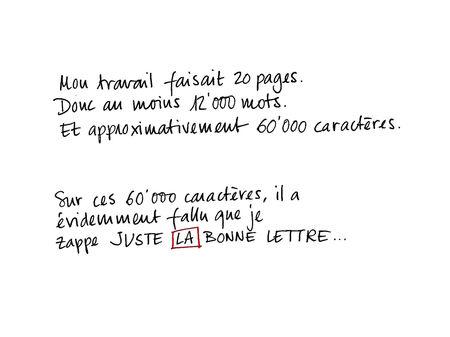 Mon travail faisait 20 pages.
Donc au moins 12'000 mots.
Et approximativement 60'000 caractères.
Sur ces 60'000 caractères, il a
évidemment fallu que je
zappe JUSTE LA BONNE LETTRE...